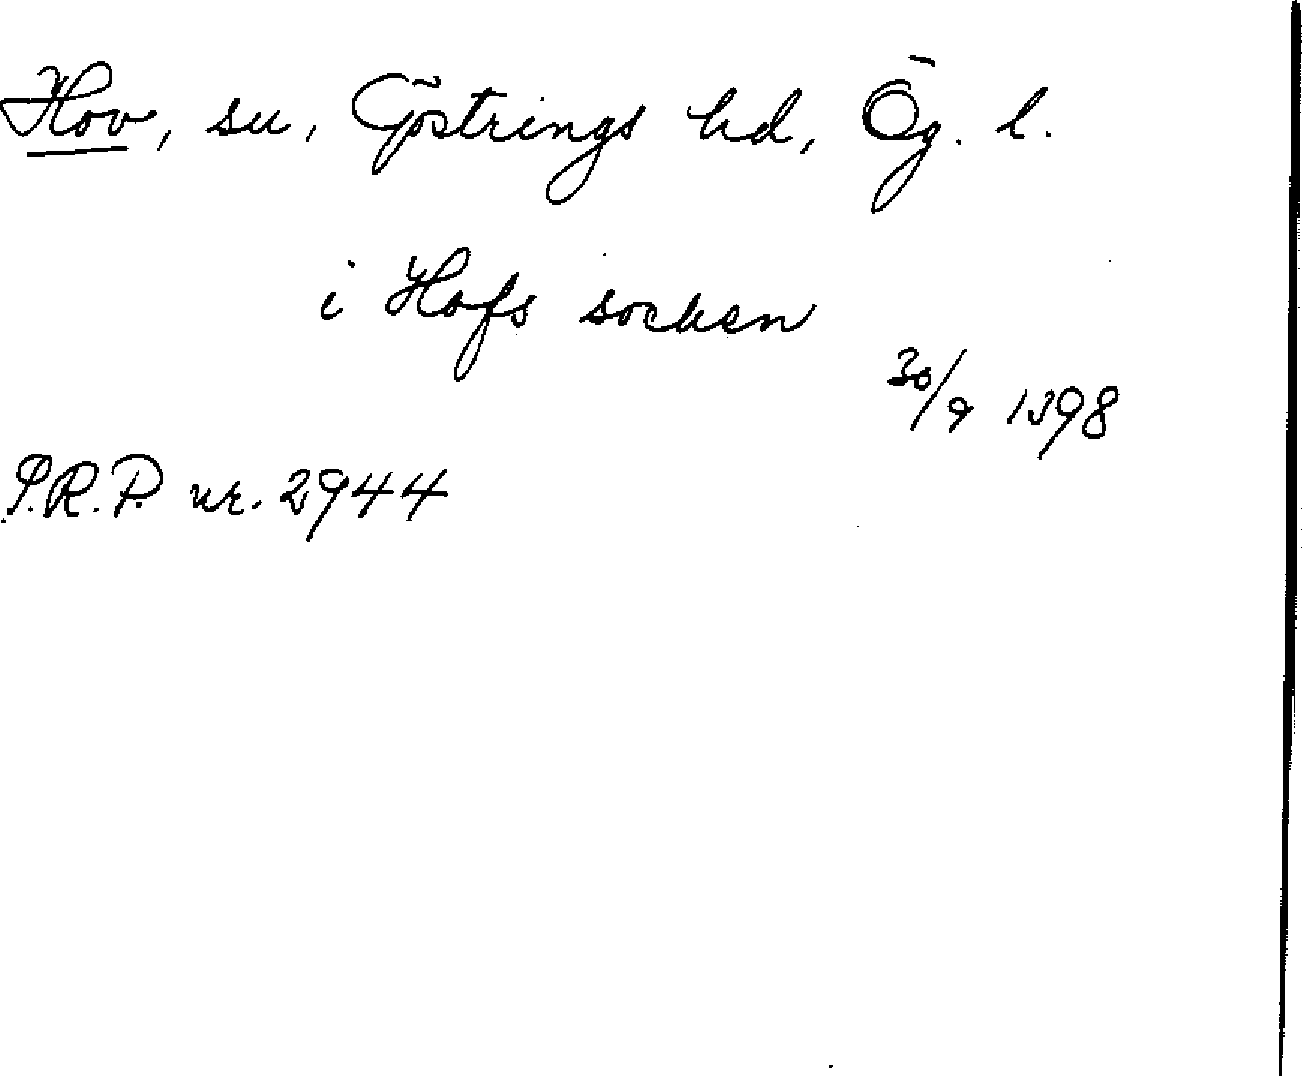 Hov, sn, Göstrings hd, Ög. l.
i Hofs socken
30/9 1398
S.R.P. nr. 2944